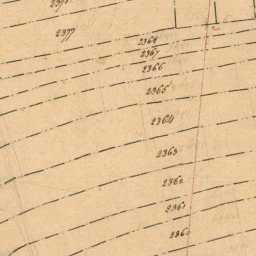 2377
2368
2367
2366
2365
2364
2363
2362
2361
2360